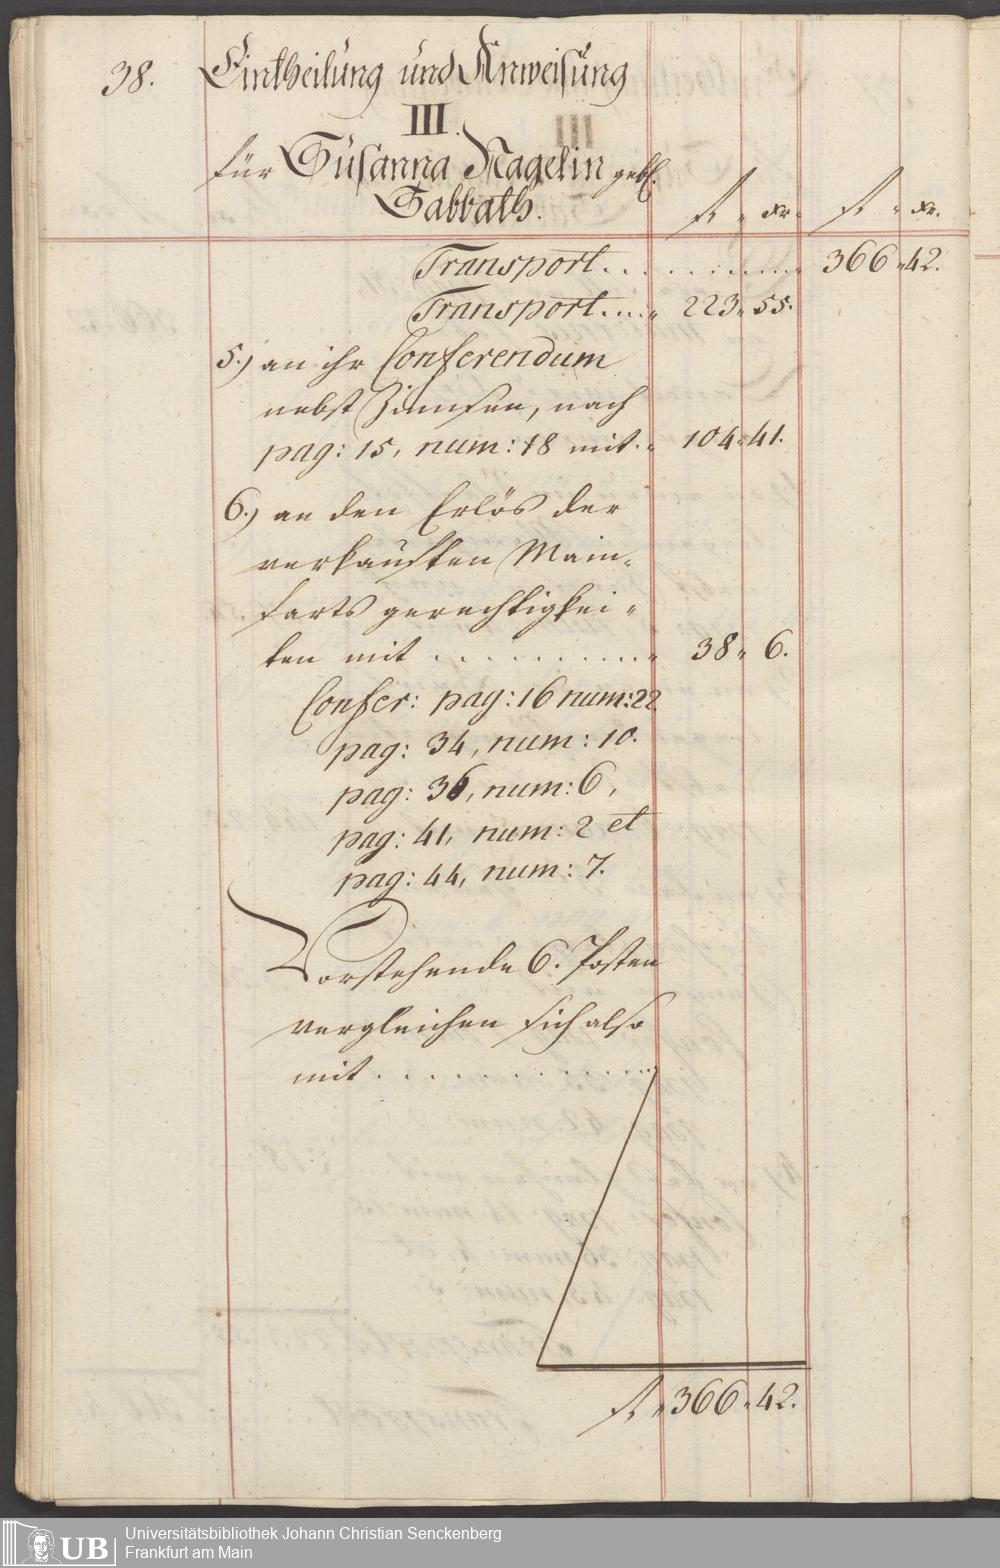 38. Eintheilung und Anweisung
III.
für Susanna Nagelin gebl.
Sabbath.
fl. " xr. fl. " xr.
Transport . . . . . . . . . 366 " 42.
Transport . . . . " 223 " 55.
5.) an ihr Conferendum
nebst Zinnsen, nach
pag: 15, num: 18 mit . " 104 " 41.
6.) an den Erlös der
verkauften Main-
farts gerechtigkei-
ten mit . . . . . . . . . . " 38 " 6.
Confer: pag: 16 num: 22
pag: 34, num: 10.
pag: 36, num: 6,
pag: 41, num: 2 et
pag: 44, num: 7.
Vorstehende 6. Posten
vergleichen sich also
mit . . . . . . . . . . . .
fl. " 366 " 42.
UB Universitätsbibliothek Johann Christian Senckenberg
Frankfurt am Main